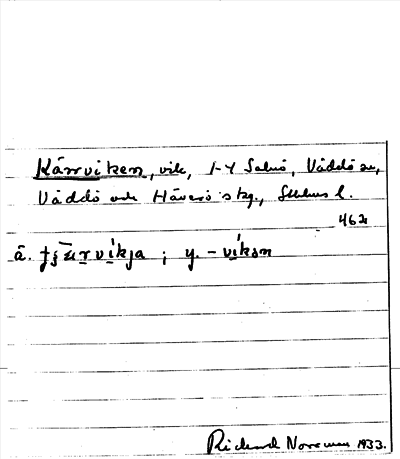 Kärrviken, vik, 1-4 Salnö, Väddö sn,
Väddö och Häverö skg., Sthlms l.
462
ä. tʂæ̅rvíkja ; y. -víkən
Richard Norrman 1933.